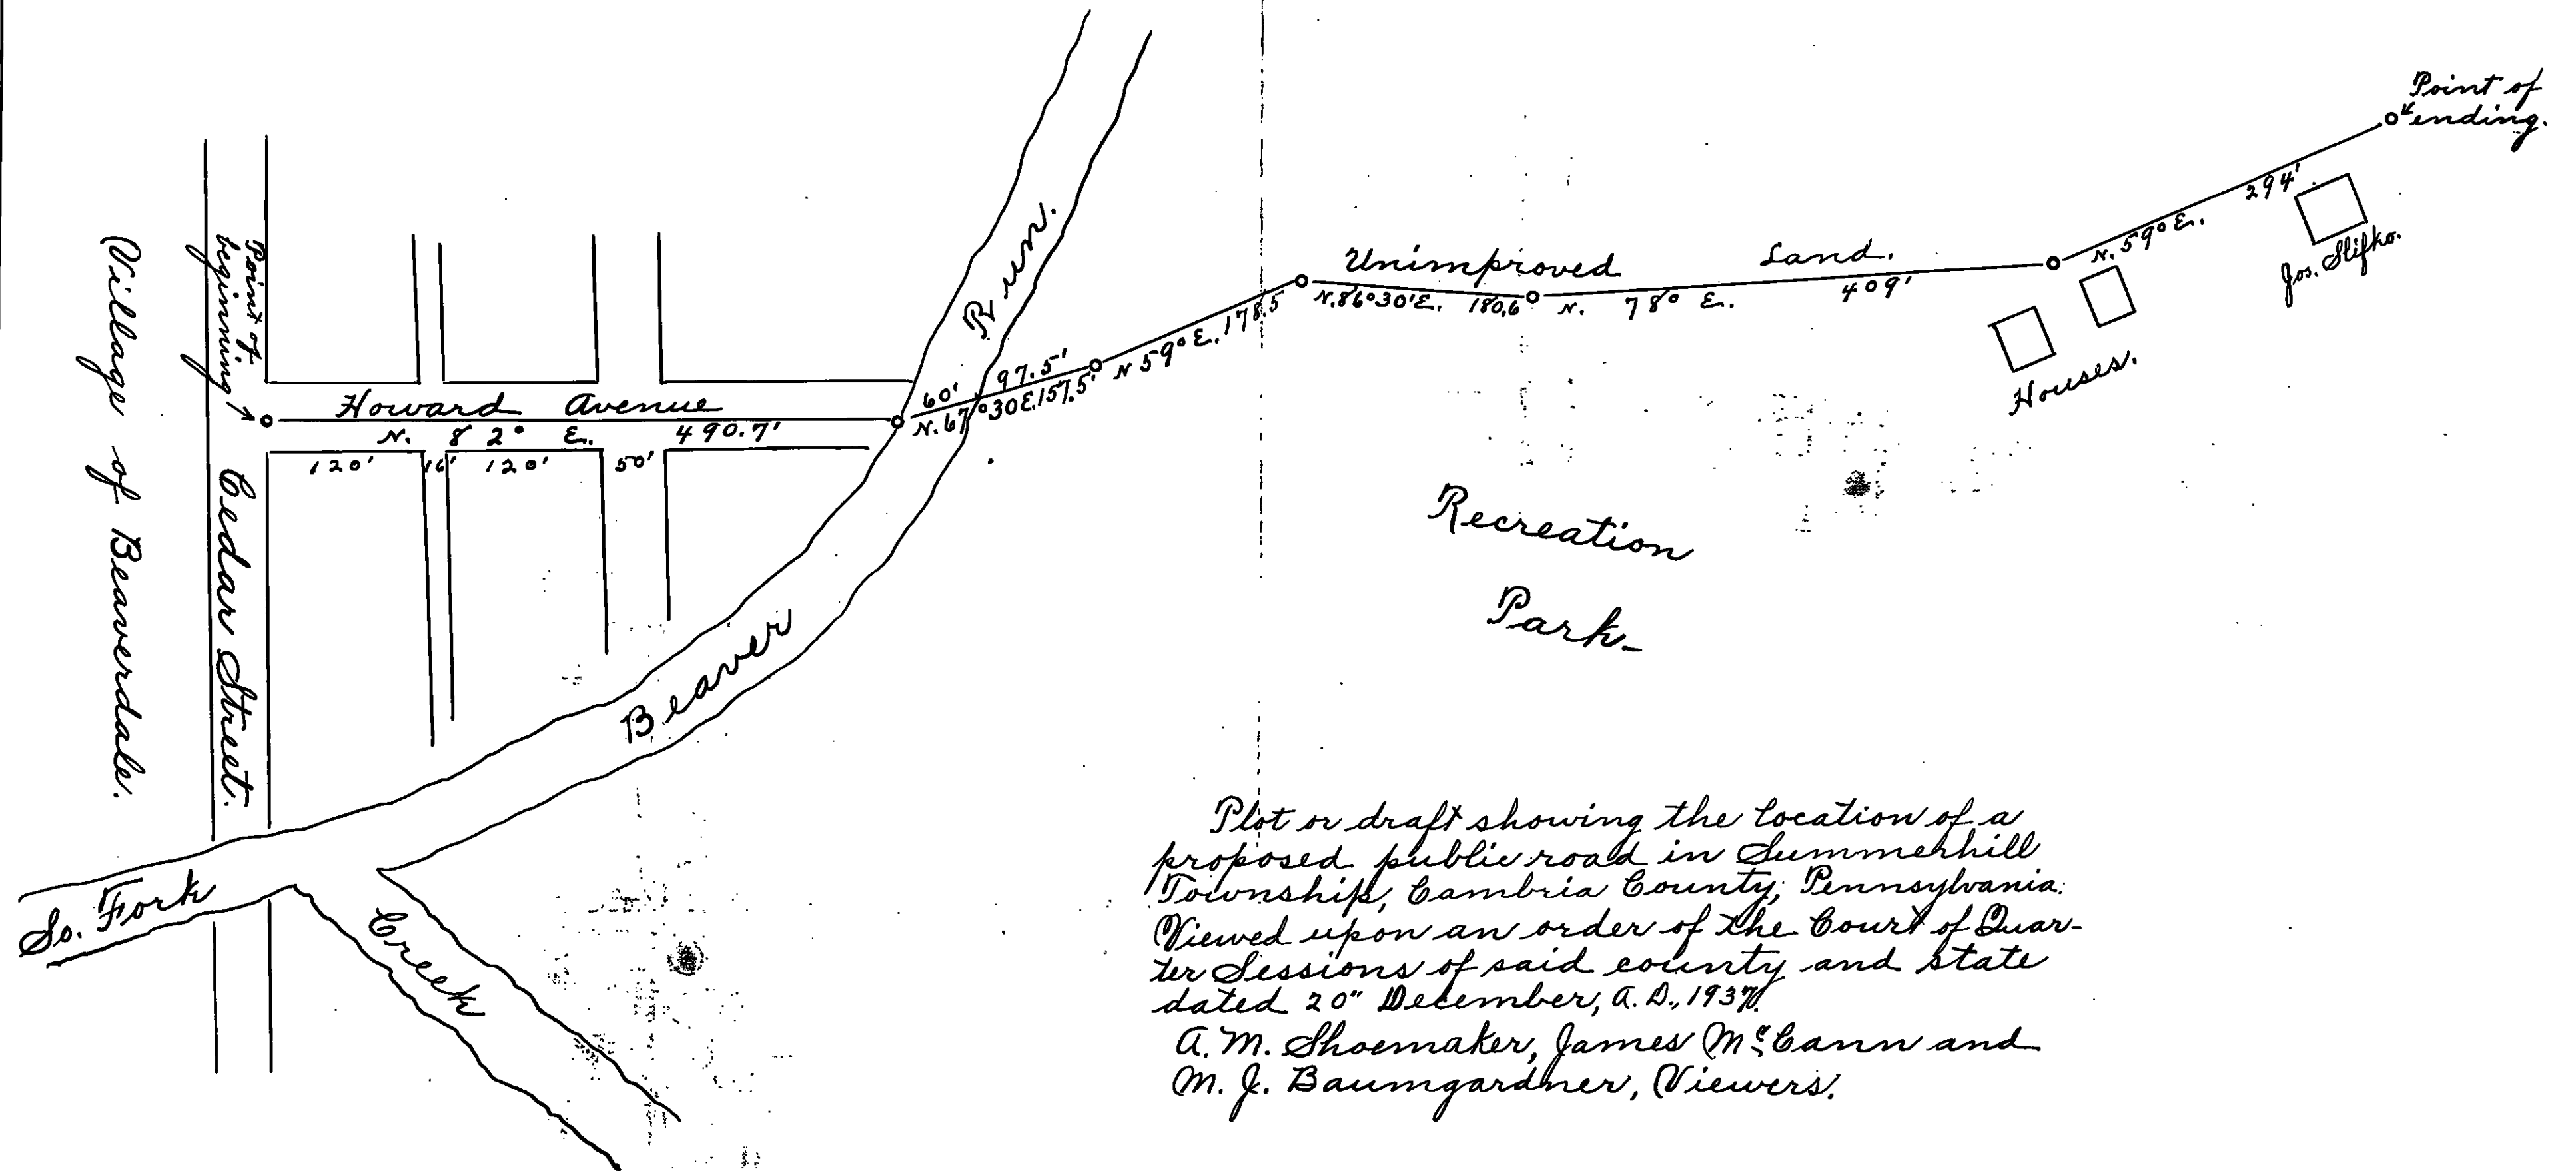 Village of Beaverdale.
Point of
beginning
Cedar Street.
Howard Avenue
N. 82° E. 490.7'
120' 16' 120' 50'
Beaver Run.
So. Fork
Creek
60' 97.5'
N. 67°30 E. 157.5'
N 59° E. 178.5
Unimproved Land.
N. 86°30' E. 180.6
N. 78° E. 409'
N. 59° E. 294'
Point of
ending.
Jos. Slifko.
Houses.
Recreation
Park
Plot or draft showing the location of a
proposed public road in Summerhill
Township, Cambria County, Pennsylvania.
Viewed upon an order of the Court of Quar-
ter Sessions of said county and state
dated 20" December, A.D., 1937.
A. M. Shoemaker, James McCann and
M. J. Baumgardner, Viewers.